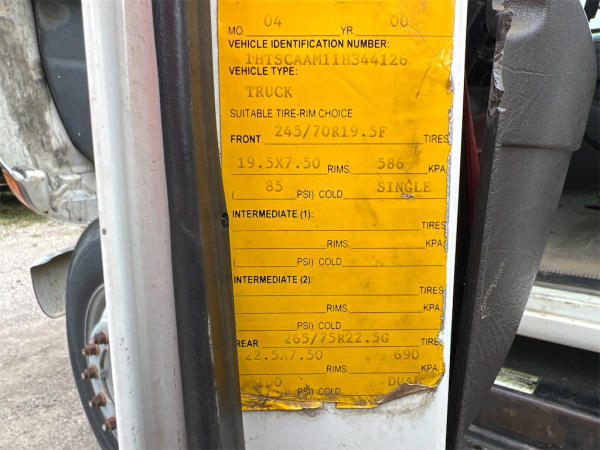 MO 04 YR 00
VEHICLE IDENTIFICATION NUMBER:
1HTSCAAM11H344126
VEHICLE TYPE:
TRUCK
SUITABLE TIRE-RIM CHOICE
FRONT 245/70R19.5F TIRES
19.5X7.50 RIMS, 586 KPA
( 85 PSI) COLD SINGLE
INTERMEDIATE (1):
TIRES
RIMS, KPA
( PSI) COLD
INTERMEDIATE (2):
TIRES
RIMS, KPA
PSI) COLD
REAR 265/75R22.5G TIRE
22.5X7.50 RIMS, 690 KPA
100 PSI) COLD DUAL